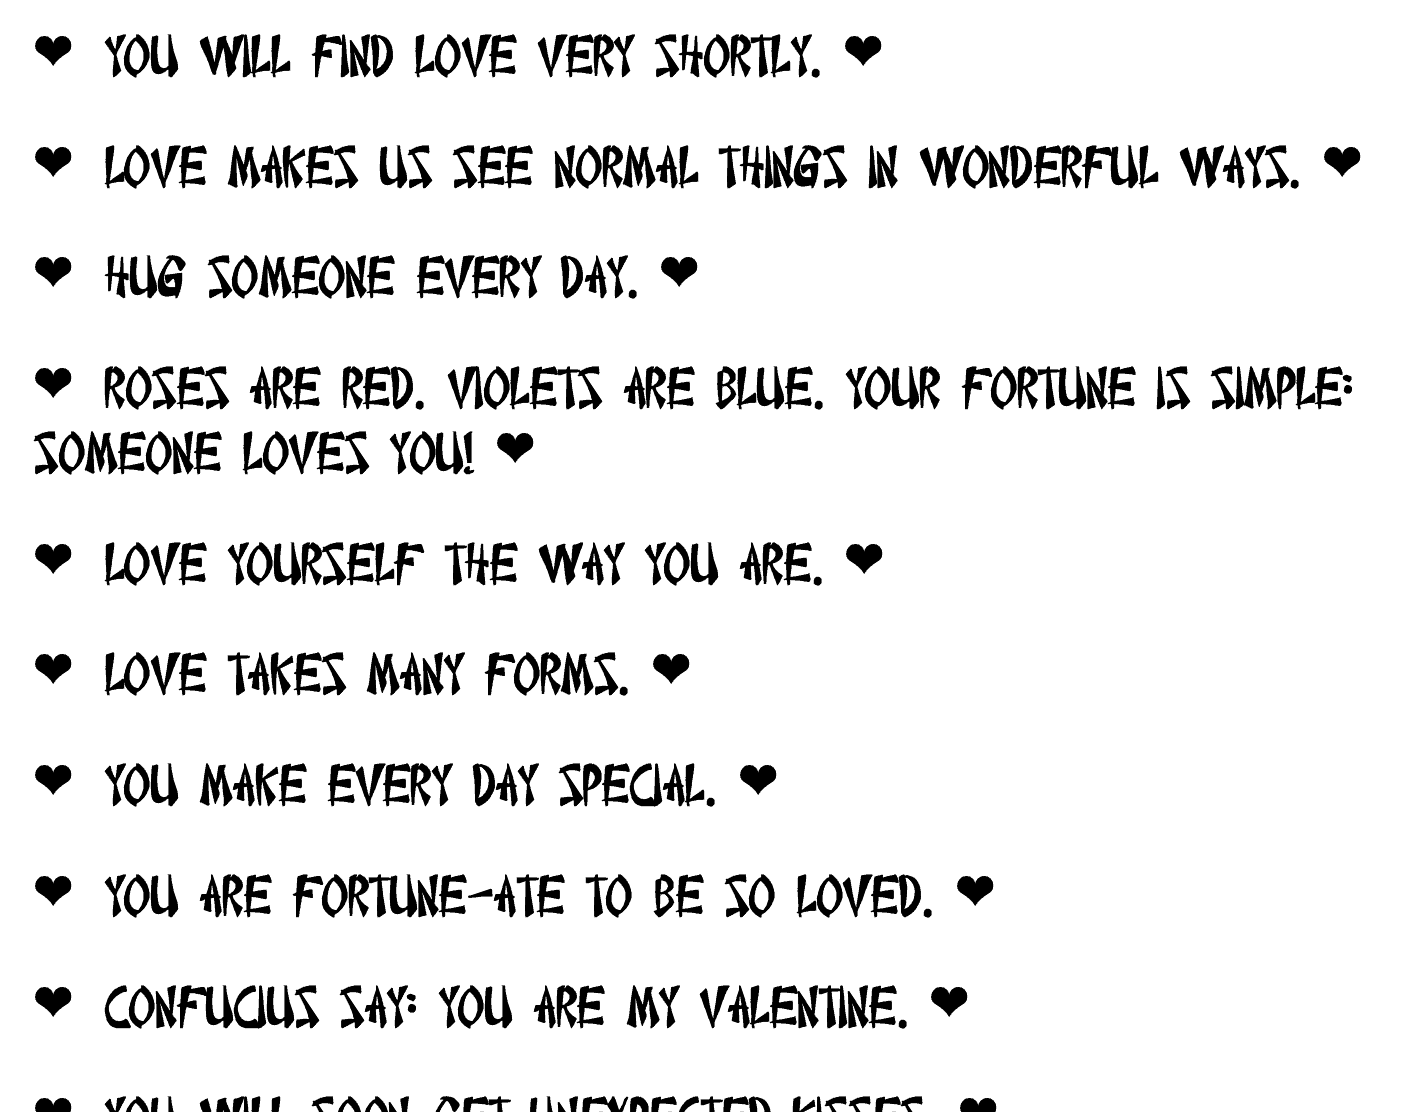 ❤ YOU WILL FIND LOVE VERY SHORTLY. ❤
❤ LOVE MAKES US SEE NORMAL THINGS IN WONDERFUL WAYS. ❤
❤ HUG SOMEONE EVERY DAY. ❤
❤ ROSES ARE RED. VIOLETS ARE BLUE. YOUR FORTUNE IS SIMPLE:
SOMEONE LOVES YOU! ❤
❤ LOVE YOURSELF THE WAY YOU ARE. ❤
❤ LOVE TAKES MANY FORMS. ❤
❤ YOU MAKE EVERY DAY SPECIAL. ❤
❤ YOU ARE FORTUNE-ATE TO BE SO LOVED. ❤
❤ CONFUCIUS SAY: YOU ARE MY VALENTINE. ❤
❤ YOU WILL SOON GET UNEXPECTED KISSES. ❤